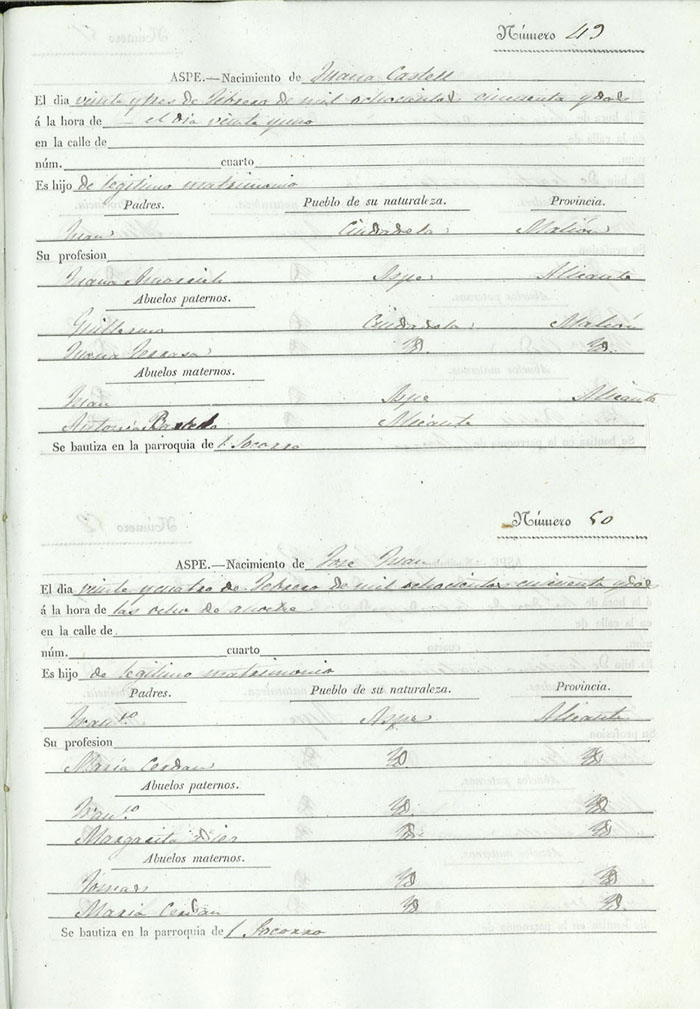 Número 49
ASPE.—Nacimiento de Juana Castell
El dia veinte y tres de Febrero de mil ochocientos cincuenta y dos
á la hora de — el dia veinte y uno
en la calle de
núm. cuarto
Es hijo de legitimo matrimonio
Padres. Pueblo de su naturaleza. Provincia.
Juan Ciudadela Mahón
Su profesion
Juana Aspe Alicante
Abuelos paternos.
Guillermo Ciudadela Mahón
Id. Id.
Abuelos maternos.
Juan Aspe Alicante
Antonia Alicante
Se bautiza en la parroquia de l Socorro
Número 50
ASPE.—Nacimiento de José Juan
El dia veinte y cuatro de Febrero de mil ochocientos cincuenta y dos
á la hora de las ocho de anoche
en la calle de
núm. cuarto
Es hijo de legitimo matrimonio
Padres. Pueblo de su naturaleza. Provincia.
Fran.co Aspe Alicante
Su profesion
Maria Cerdan Id Id
Abuelos paternos.
Fran.co Id Id
Margarita Id Id
Abuelos maternos.
Tomas Id Id
Maria Cerdan Id Id
Se bautiza en la parroquia de l Socorro